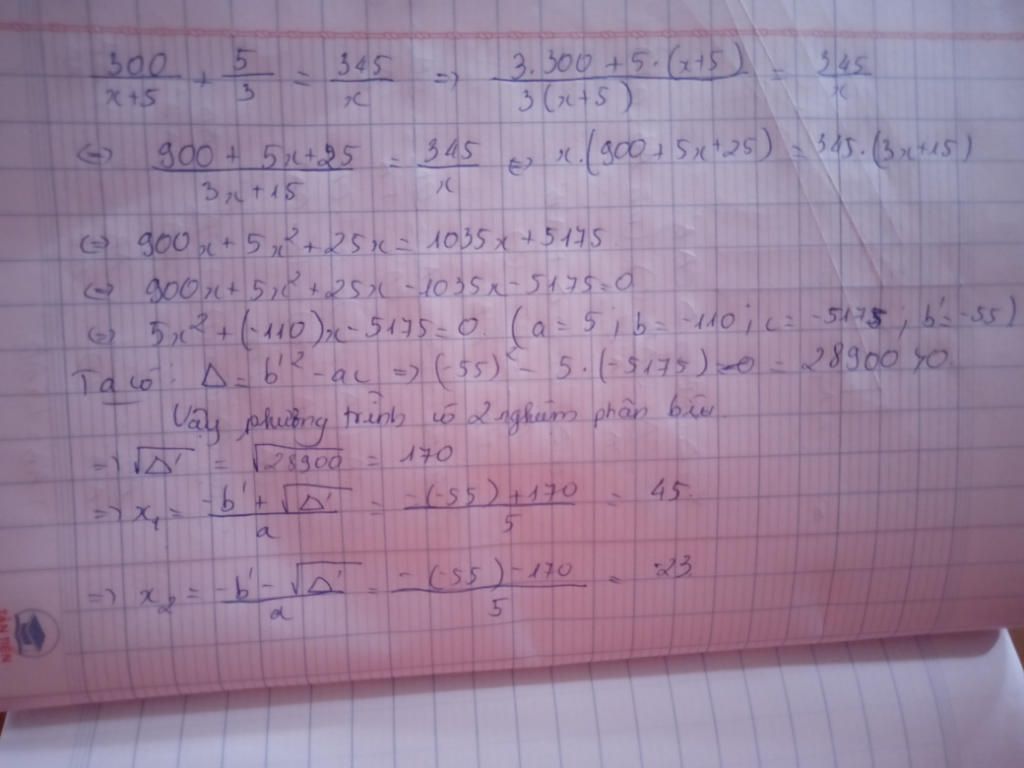 300/(x+5) + 5/3 = 345/x => (3.300 + 5.(x+5))/(3(x+5)) = 345/x
<=> (900 + 5x+25)/(3x+15) = 345/x <=> x.(900+5x+25) = 345.(3x+15)
<=> 900x + 5x² + 25x = 1035x + 5175
<=> 900x + 5x² + 25x - 1035x - 5175=0
<=> 5x² + (-110)x - 5175 = 0. (a = 5; b = -110; c = -5175; b' = -55)
Ta có: Δ = b'² - ac => (-55)² - 5.(-5175) = 28900 >0.
Vậy phương trình có 2 nghiệm phân biệt.
=> √Δ' = √28900 = 170
=> x₁ = (-b' + √Δ')/a = (-(-55) + 170)/5 = 45.
=> x₂ = (-b' - √Δ')/a = (-(-55) - 170)/5 = -23
TÂN TIẾN